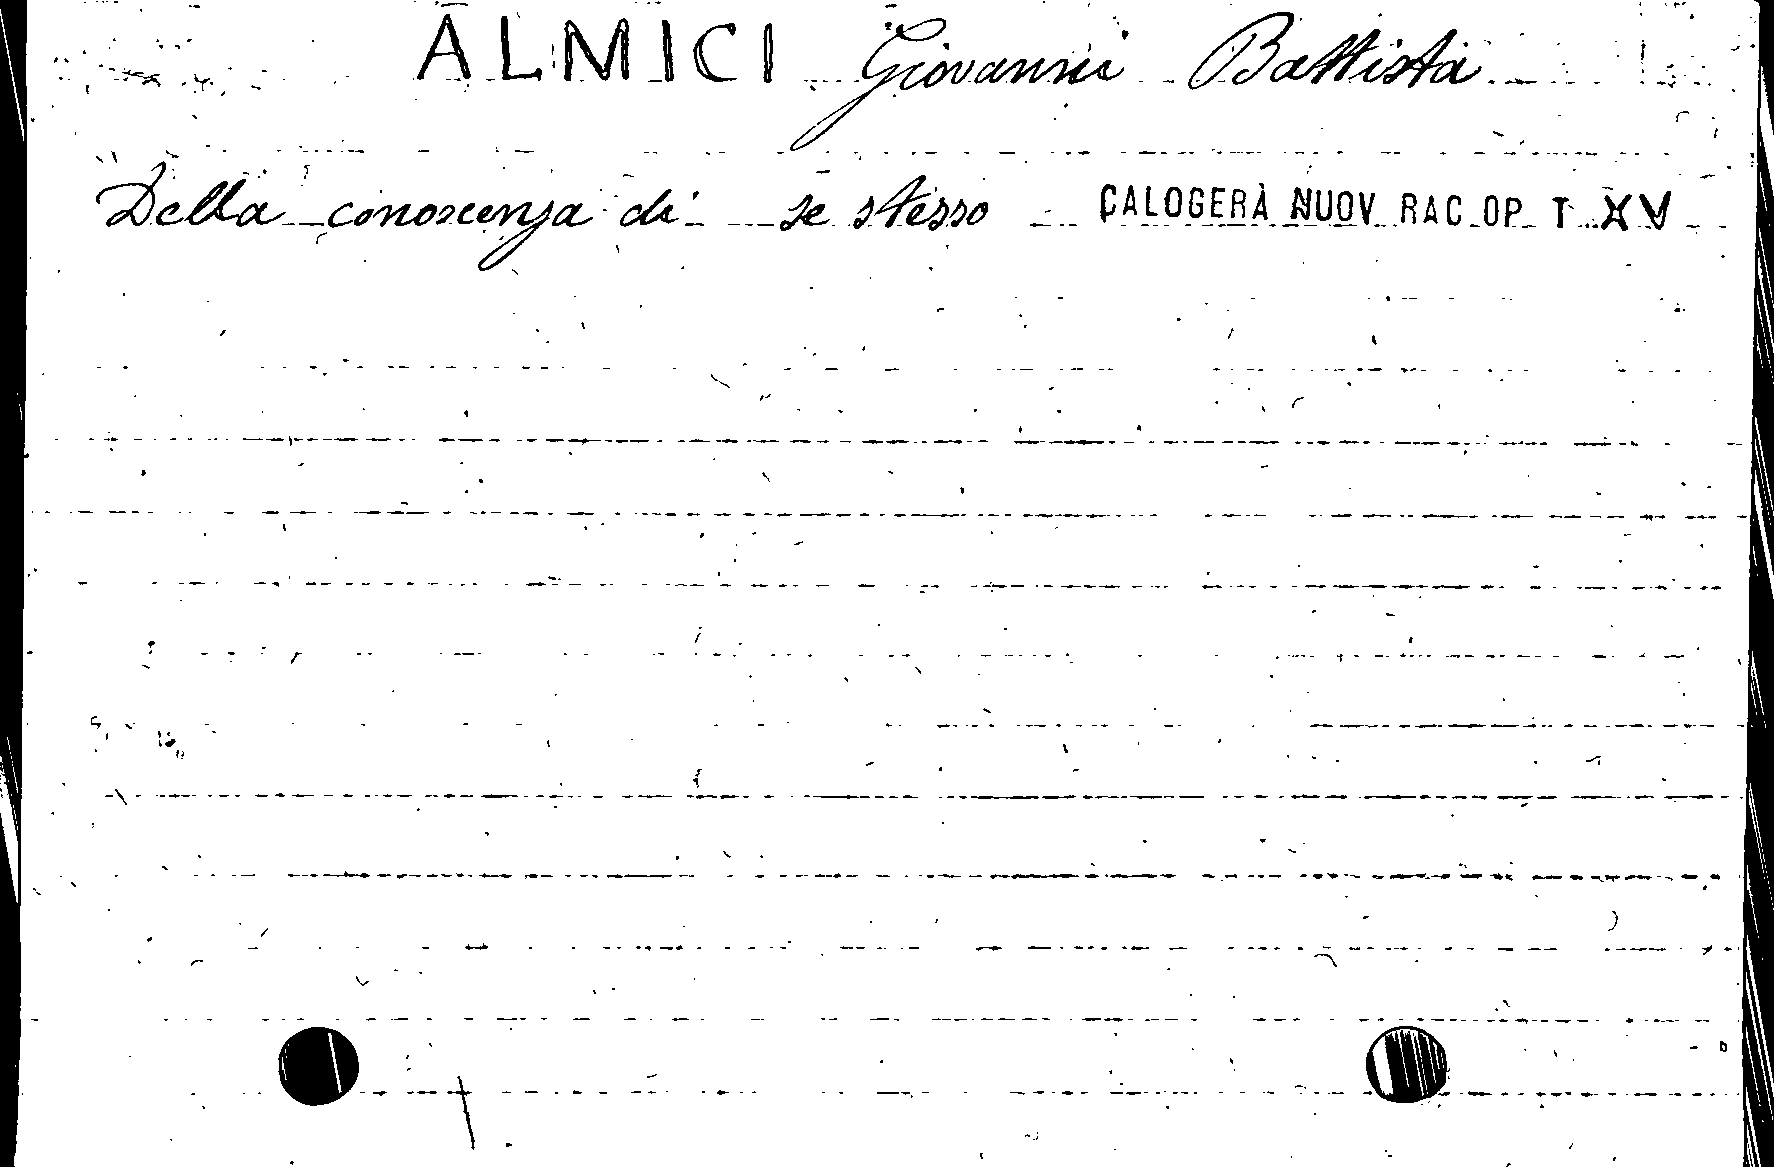 ALMICI Giovanni Battista
Della conoscenza di se stesso CALOGERÀ NUOV RAC OP T XV